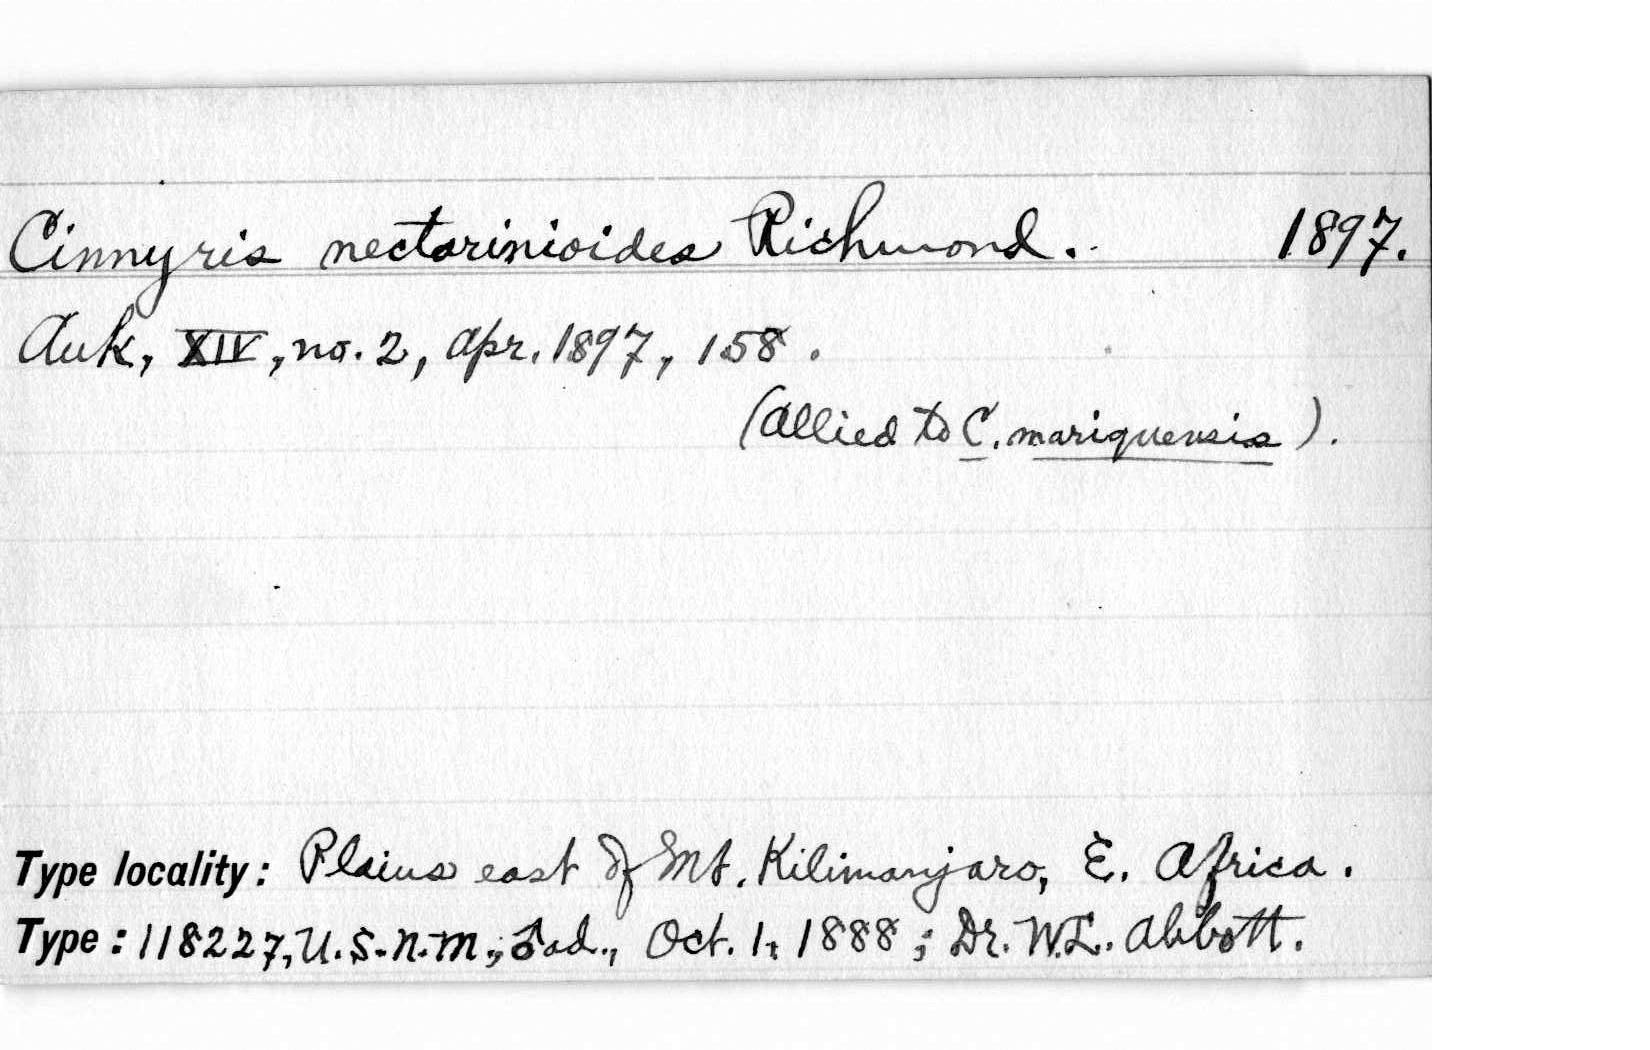 Cinnyris nectarinioides Richmond. 1897.
Auk, XIV, no. 2, Apr. 1897, 158.
(Allied to C. mariquensis).
Type locality: Plains east of Mt. Kilimanjaro, E. Africa.
Type: 118227, U.S.N.M.; ♂ ad., Oct. 1, 1888; Dr. W.L. Abbott.